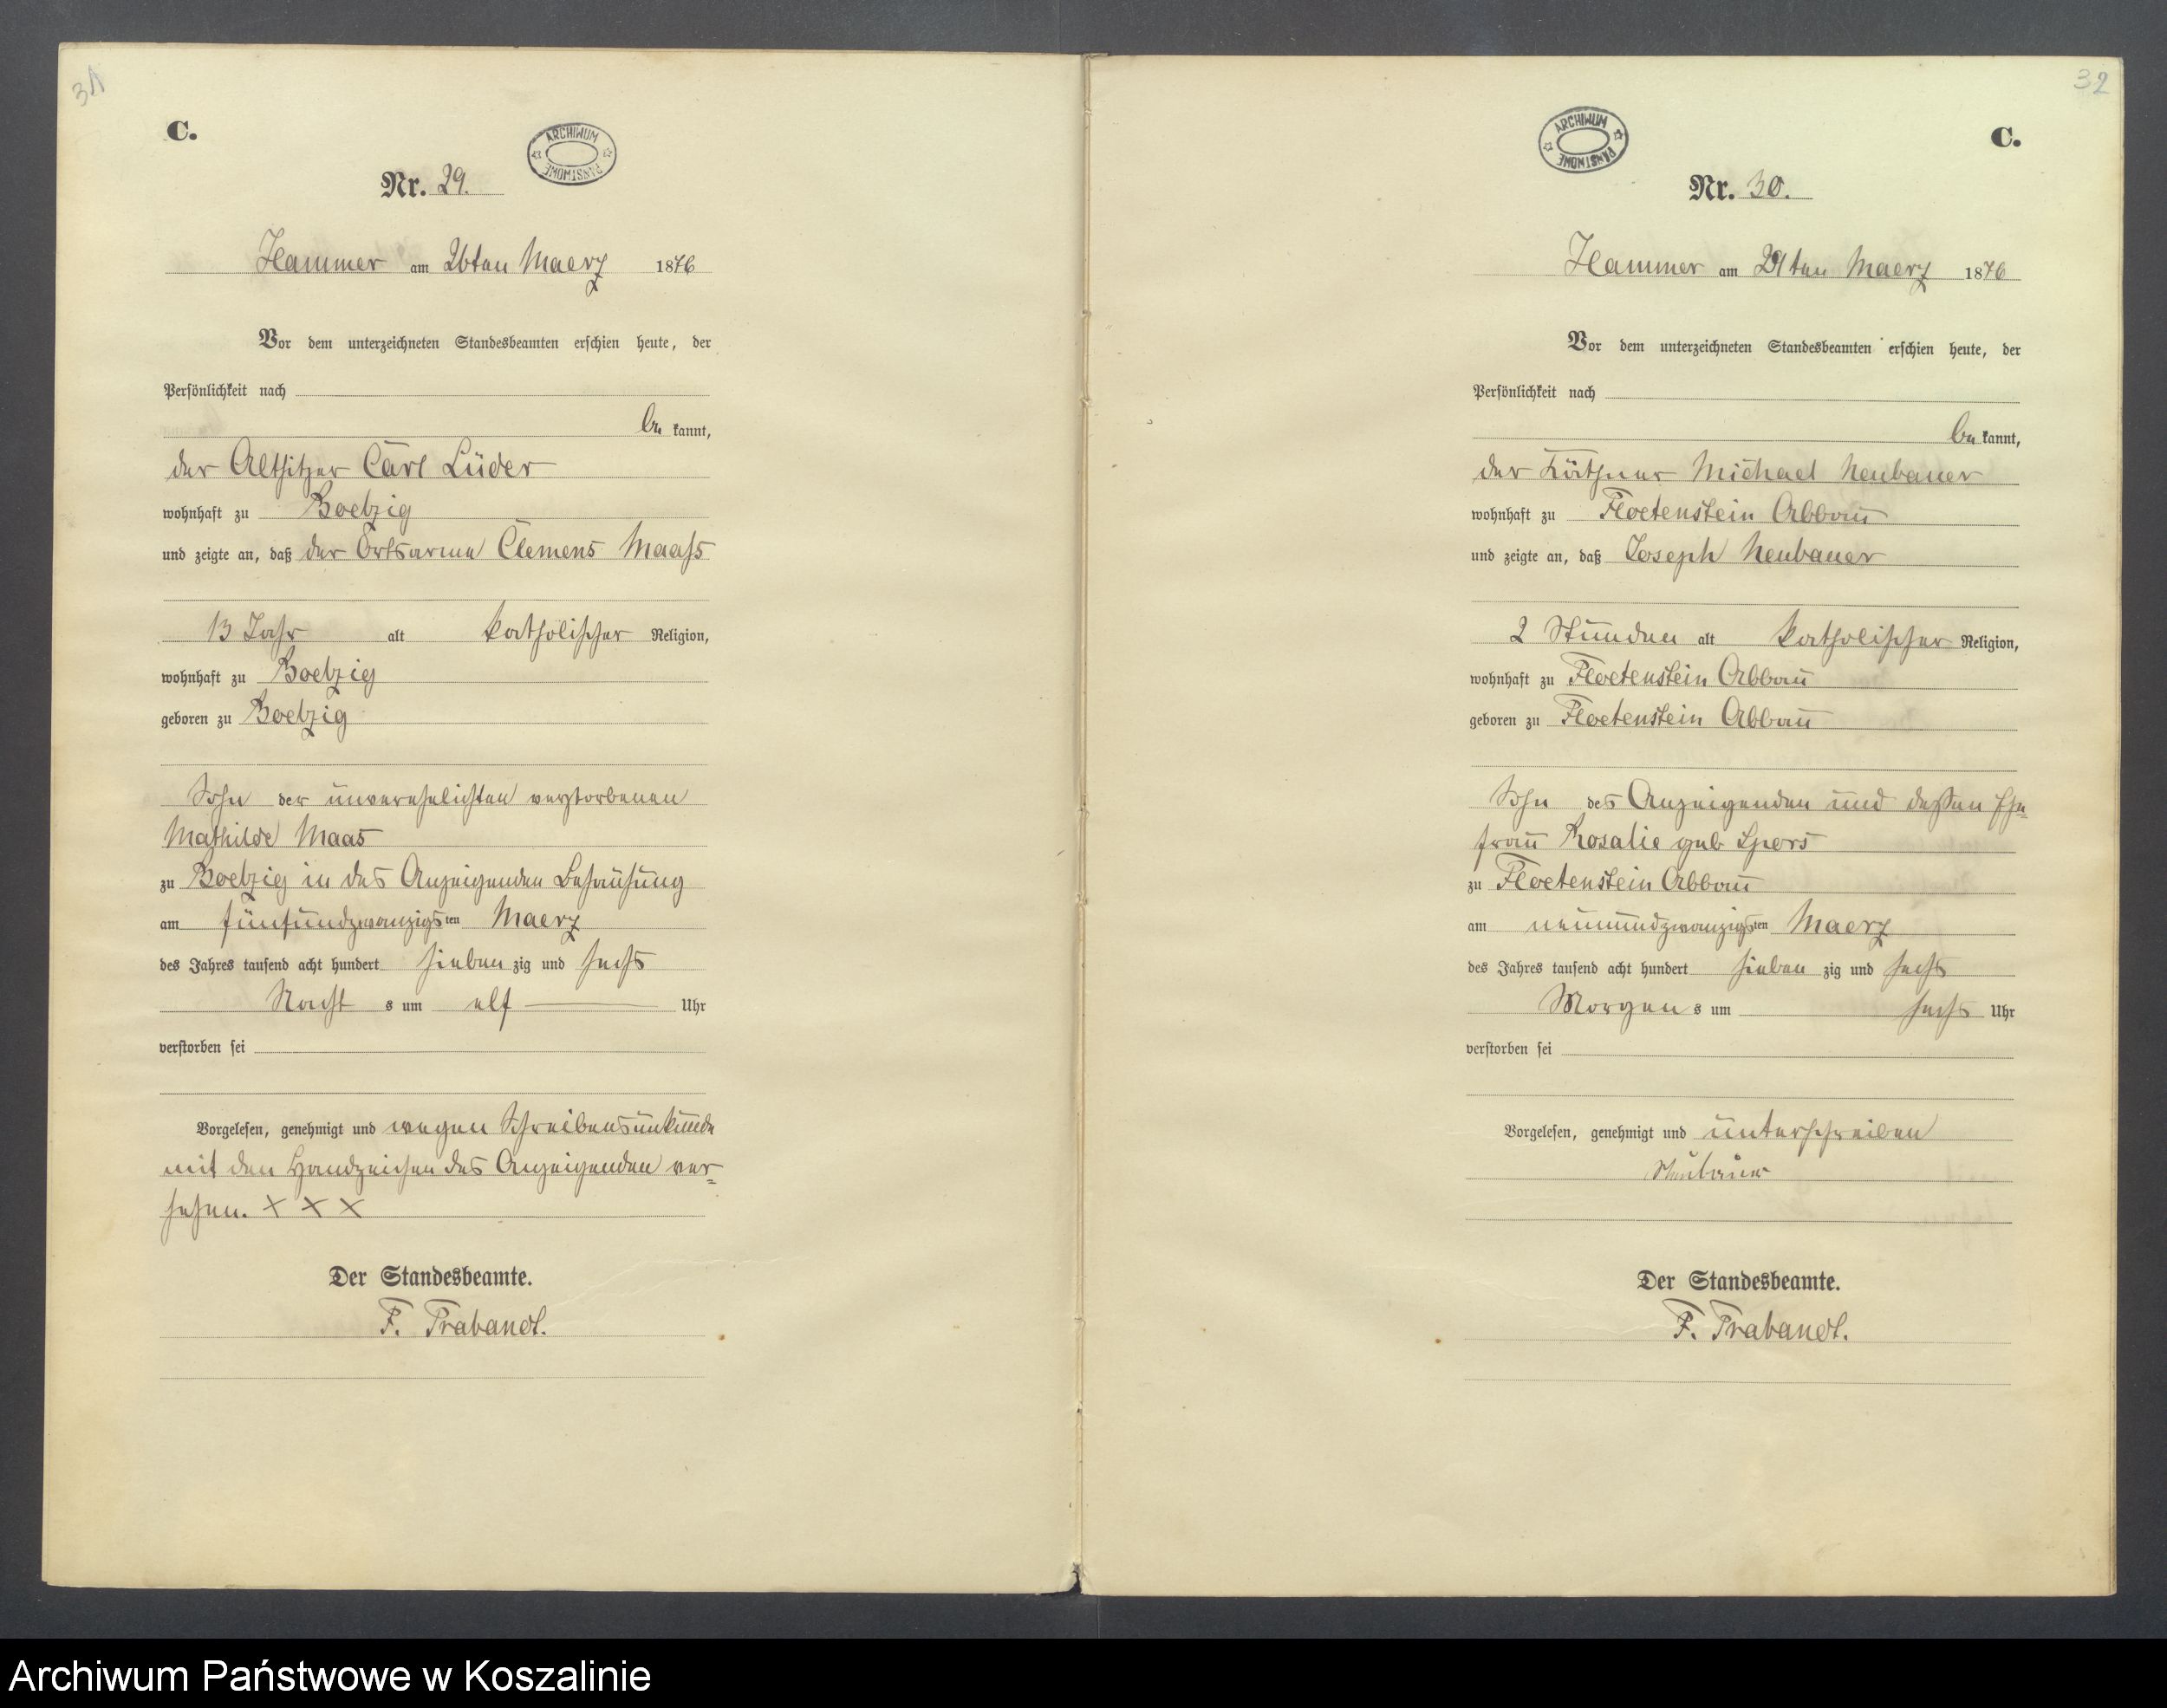 31
C.
ARCHIWUM PAŃSTWOWE
Nr. 29.
Hammer am 26ten Maerz 1876
Vor dem unterzeichneten Standesbeamten erschien heute, der
Persönlichkeit nach
be kannt,
der Altsitzer Carl Lüder
wohnhaft zu Boelzig
und zeigte an, daß der Ortsarme Clemens Maaß
13 Jahr alt katholischer Religion,
wohnhaft zu Boelzig
geboren zu Boelzig
Sohn der unverehelichten verstorbenen
Mathilde Maas
zu Boelzig in des Anzeigenden Behausung
am fünfundzwanzigsten Maerz
des Jahres tausend acht hundert sieben zig und sechs
Nacht s um elf Uhr
verstorben sei
Vorgelesen, genehmigt und wegen Schreibensunkunde
mit den Handzeichen des Anzeigenden ver-
sehen. X X X
Der Standesbeamte.
F. Trabandt.
32
C.
ARCHIWUM PAŃSTWOWE
Nr. 30.
Hammer am 29ten Maerz 1876
Vor dem unterzeichneten Standesbeamten erschien heute, der
Persönlichkeit nach
be kannt,
der Käthner Michael Neubauer
wohnhaft zu Floetenstein Abbau
und zeigte an, daß Joseph Neubauer
2 Stunden alt katholischer Religion,
wohnhaft zu Floetenstein Abbau
geboren zu Floetenstein Abbau
Sohn des Anzeigenden und dessen Ehe=
frau Rosalie geb Spors
zu Floetenstein Abbau
am neunundzwanzigsten Maerz
des Jahres tausend acht hundert sieben zig und sechs
Morgen s um sechs Uhr
verstorben sei
Vorgelesen, genehmigt und unterschreiben
Der Standesbeamte.
F. Trabandt.
Archiwum Państwowe w Koszalinie